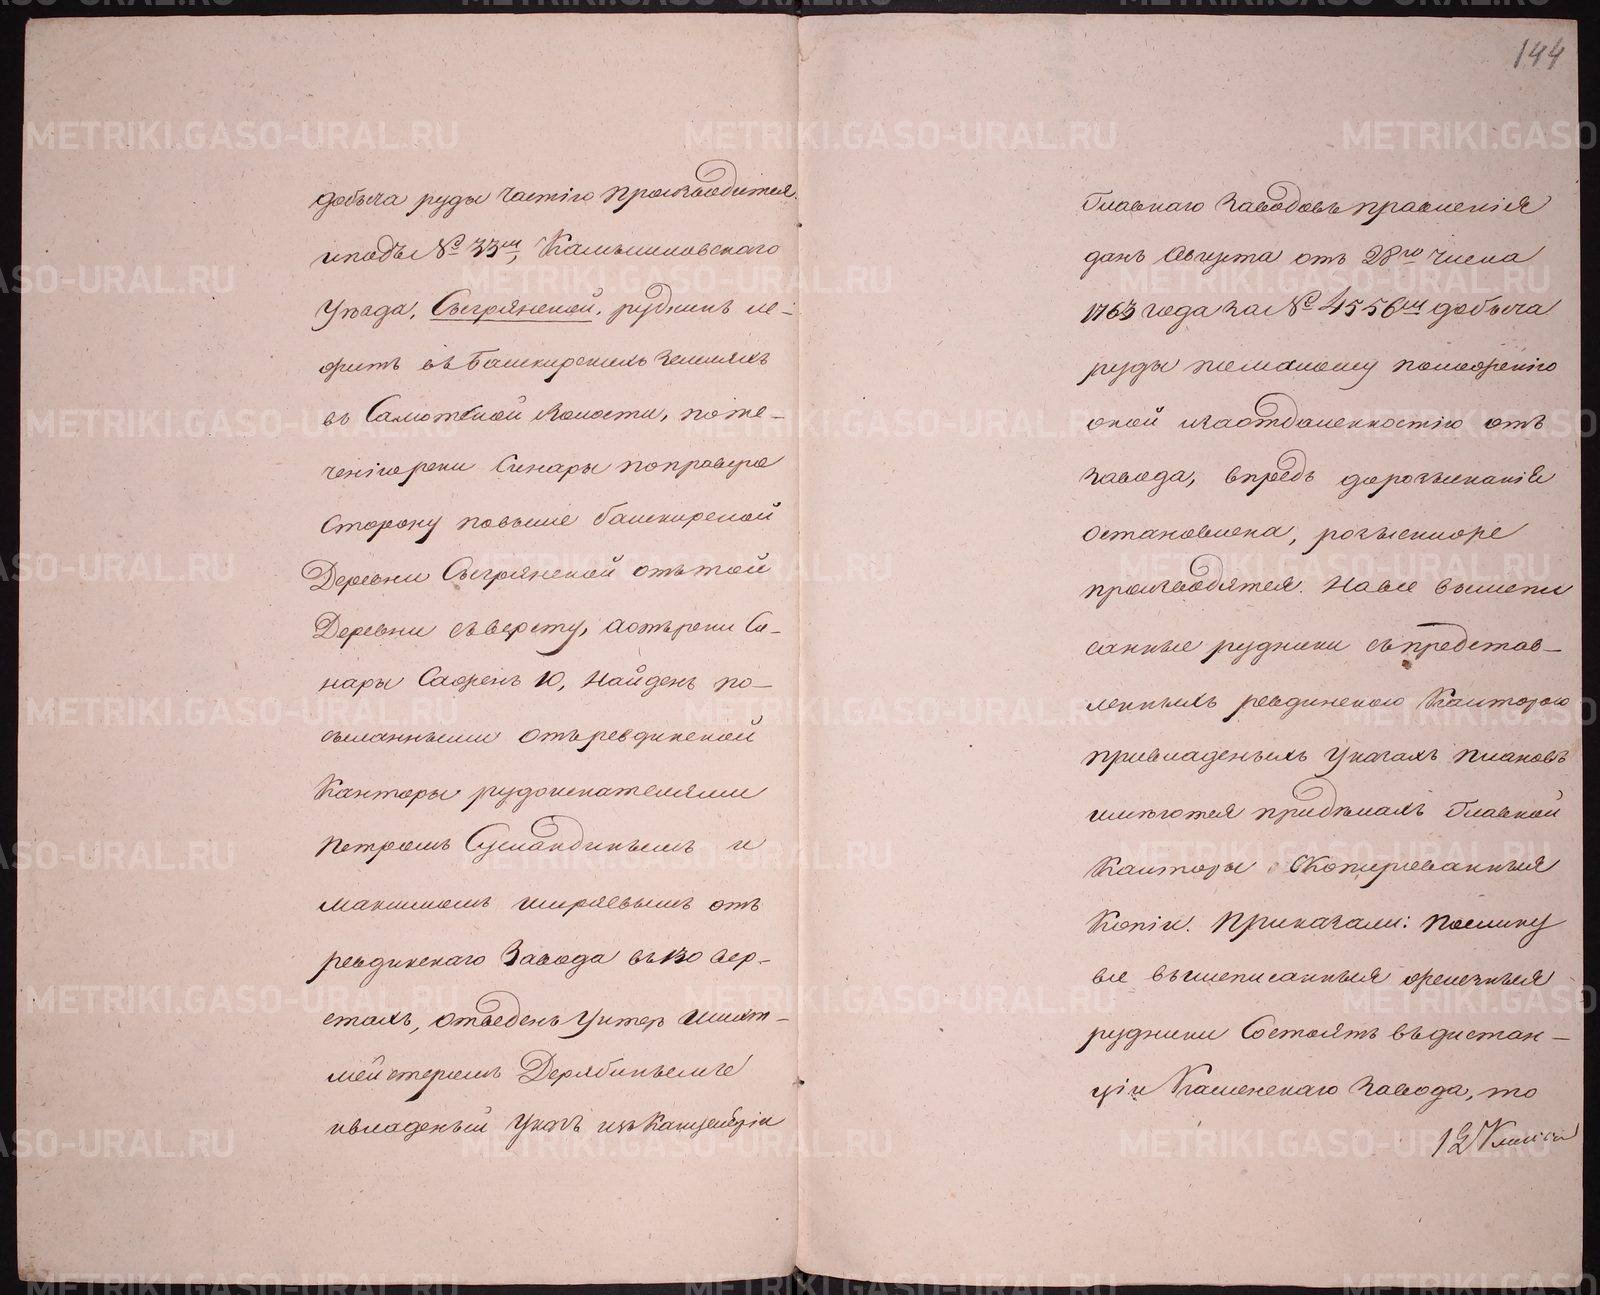 добыча руды частiю производится.
иподъ № 33мъ, Камышловскаго
Уѣзда, Сыгрянской, рудникъ ле-
житъ въ Башкирскихъ земляхъ
въ Салютской волости, поте-
ченiюреки Синары поправую
сторону повыше башкирской
Деревни Сыгрянской отътой
Деревни съверсту, аотъреки Си-
нары Саженъ 10, Найденъ по-
сыланными отъревдинской
Канторы рудоискателями
Петромъ Сусландинымъ и
максимомъ ширяевымъ отъ
ревдинскаго Завода въ130 вер-
стахъ, отведенъ Унтеръ шихт-
мейстеромъ Дерябинымъ
ивладеный Указъ изъ Канцелярiи
144
Главнаго Заводовъ правленiя
данъ Августа отъ 28го числа
1763 года за № 4556мъ добыча
руды помалому положенiю
оной изаотдаленностiю отъ
завода, впредь доразысканiя
остановлена, розыскиже
производятся. Навсе вышепи
санные рудники съпредстав-
ленныхъ ревдинскою Канторою
привладеныхъ Указахъ плановъ
имѣются придѣлахъ Главной
Канторы скопированныя
Копiи. Приказали: Поелику
все вышеписанныя железныя
рудники Состоятъ въдистан-
цiи Каменскаго Завода, то